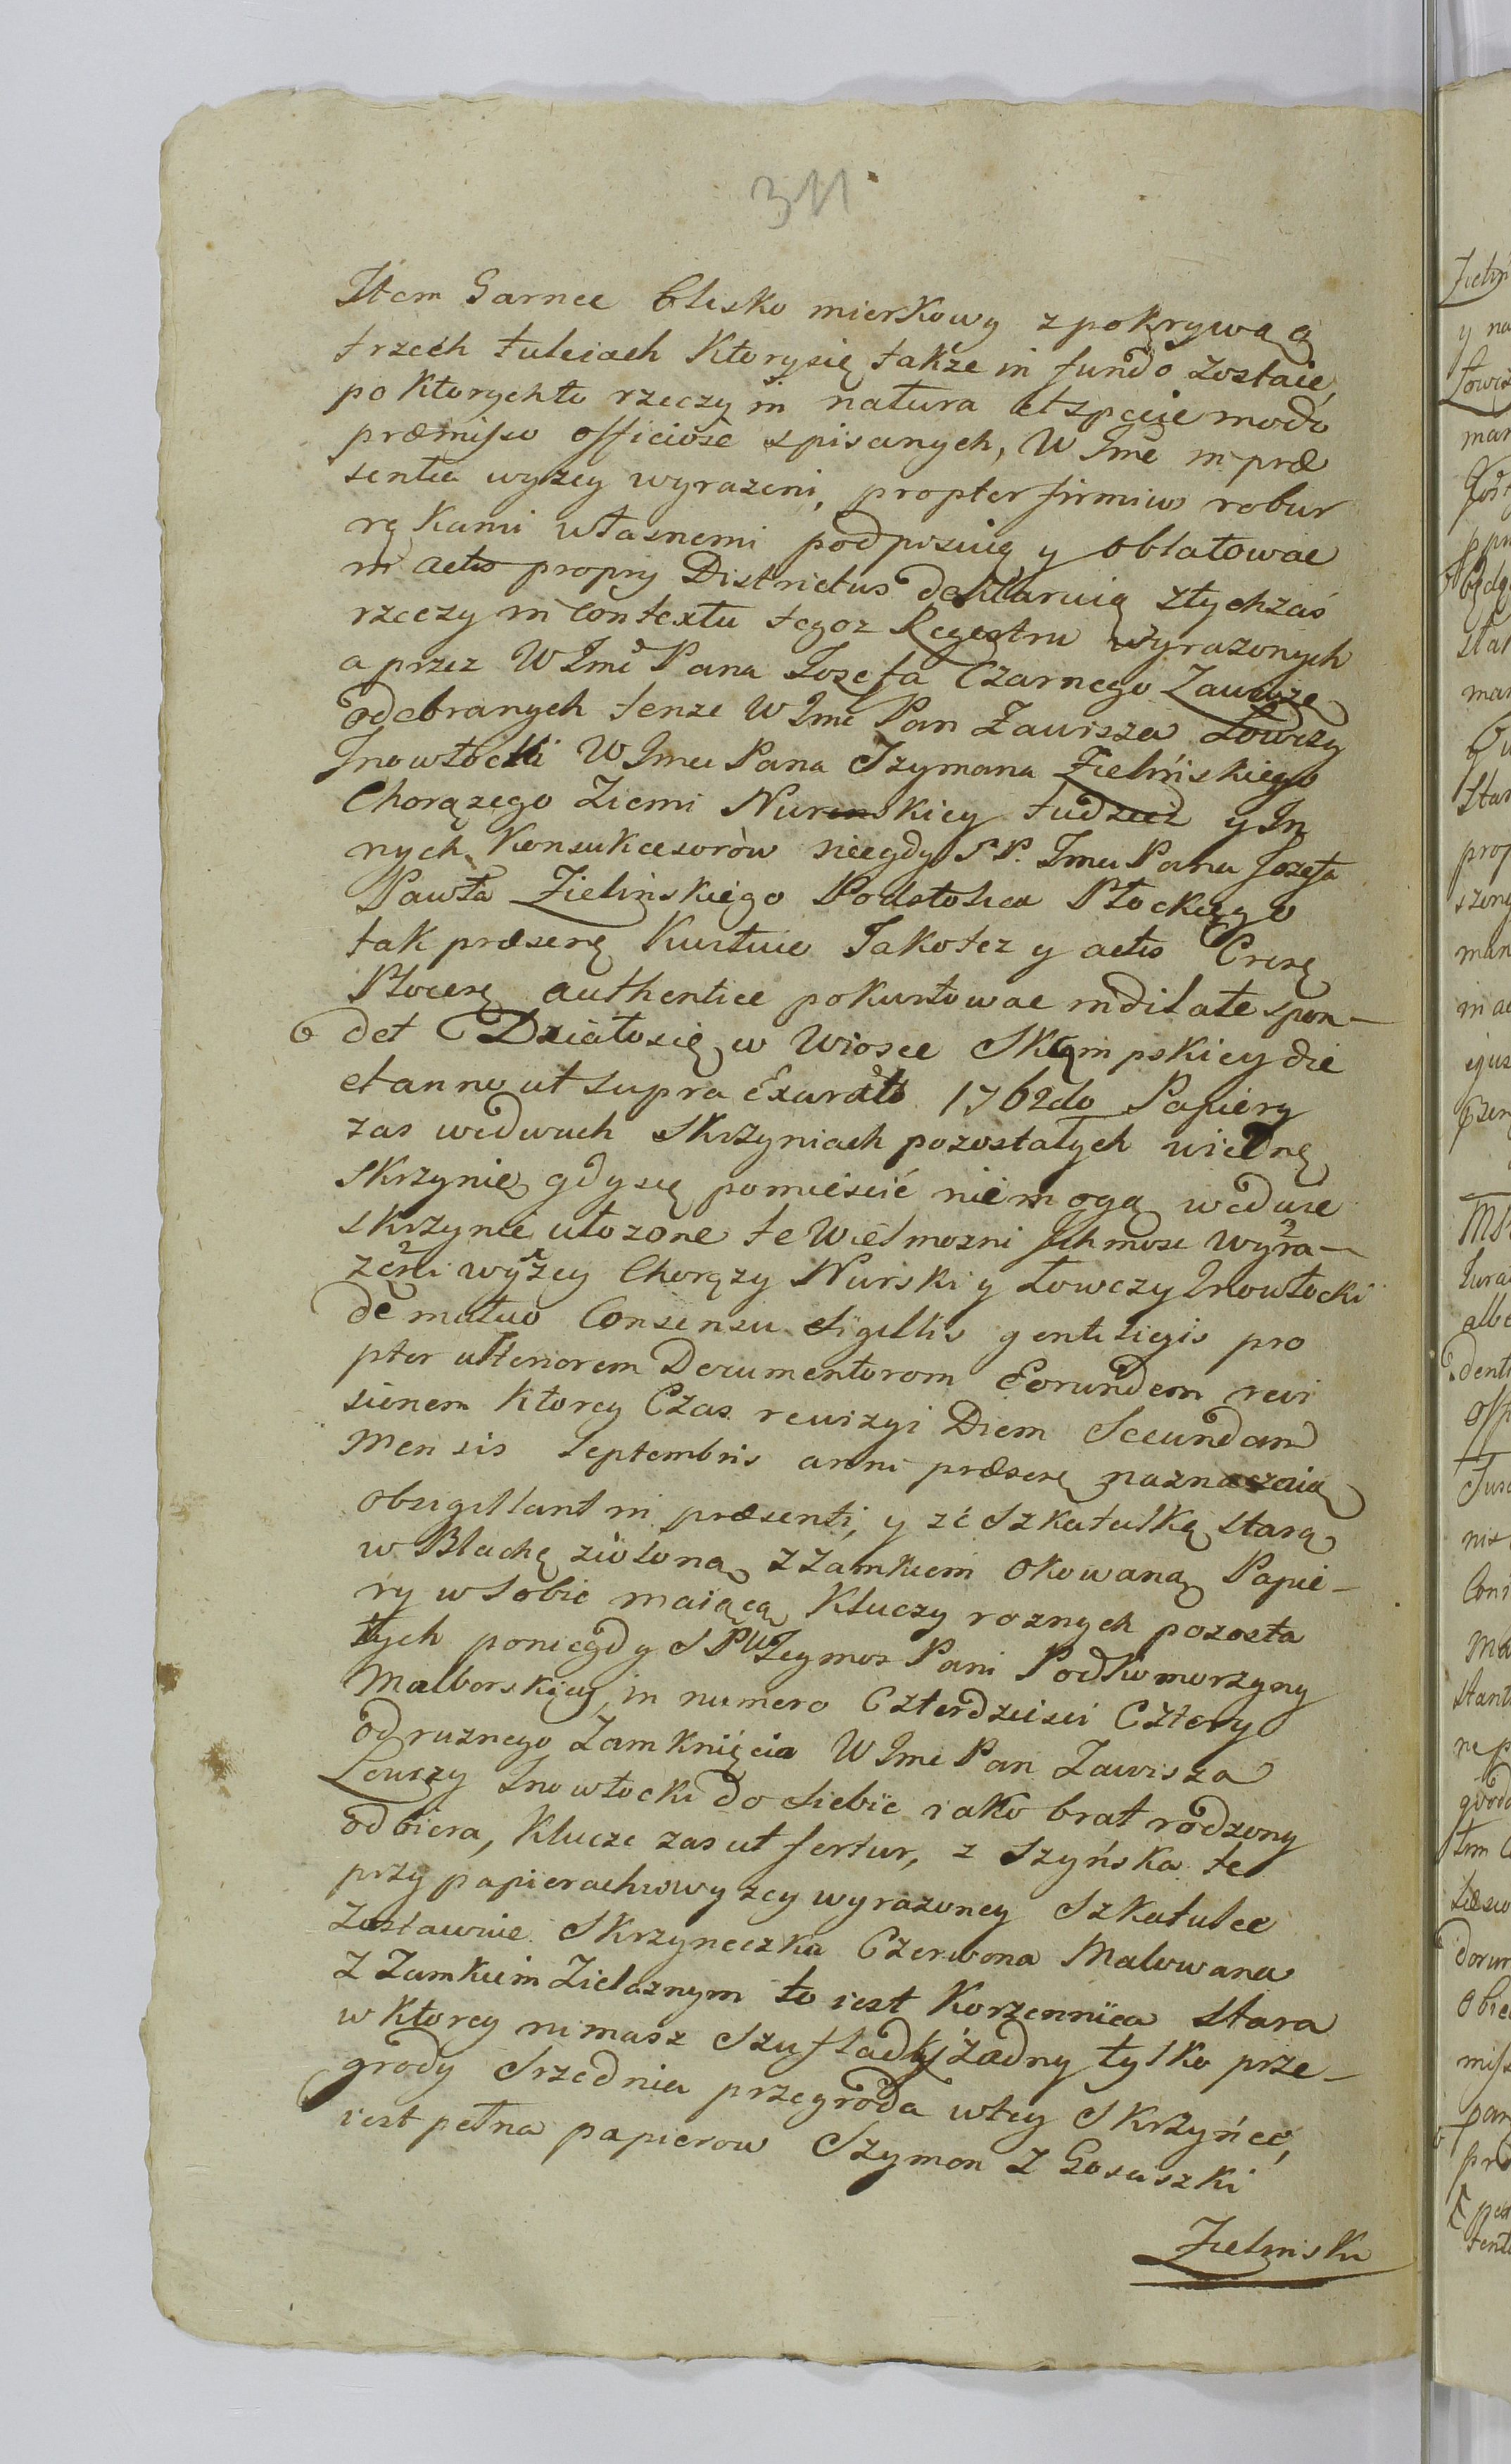 311
Item Garnce blisko mierkowy z pokrywą ą
trzech tuleiach ktorysię także in fundo zostaie,
po ktorychto rzeczy in natura et specie modo
præmisso officiose spisanych, W Jmć in præ
sentia wyżey wyrazeni, propter firmius robur
rękami własnemi podpisuią y oblatowac
in acta propry Districtus deklaruią ztychzaś
rzeczy in Contextu tegoz Regestru wyrazonych
a przez W Jmć Pana Jozefa Czarnego Zawiszę
odebranych tenze W Jmć Pan Zawisza Łowczy
Jnowłocki W Jmci Pana Szymana Zielińskiego
Chorązego Ziemi Nurskiey tudziez y In
nych Konsukcesorów niegdy S P. Jmci Pana Jozefa
Pawła Zielińskiego Podstolica Płockiego
tak præserę kwituie Jakotez y actis Crcrę
Płocerę authentice pokwitowac indilate spon-
det Działosię w Wiosce Skęmpskiey die
et anno ut supra Exarato 1762do Papiery
zas wedwuch Skrzyniach pozostałych wiednę
Skrzynię gdysię pomieścić niemogą wedwie
skrzynie ułozone te Wielmozni Ichmosc wyra-
zeni wyżey Chorązy Nurski y Łowczy Inowłocki
de mutuo Consensu Sigillis gentiligis pro
pter ulteriorem Documentorom Eorundem revi
sionem ktorey Czas rewizyi Diem Secundam
Mensis Septembris anni præserę naznaczaią
obsigillant in præsenti, y ze Szkatułką starą
w Blachę zioloną z zamkiem okowaną Papie-
ry w Sobie maiącą Kluczy roznych pozosta
łych poniegdy S P W Jeymos Pani Podkomorzyny
Malborskiey, in numero Czterdziesci Cztery
od ruznego Zamknięcia W Jmć Pan Zawisza
Łowczy Inowłocki do Siebie iako brat rodzony
odbiera, Klucze zas ut fertur, z Szyńska te
przy papierach wwyzey wyrazoney Szkatulce
zostawuie Skrzyneczka Czerwona Malowana
z Zamkiem Zielaznym to iest Korzennica Stara
w ktorey nimasz Szufladky żadny tylko prze-
grody Srzednia przegroda wtey Skrzyńce,
iest pełna papierow Szymon Z Gosuszki
Zielinski